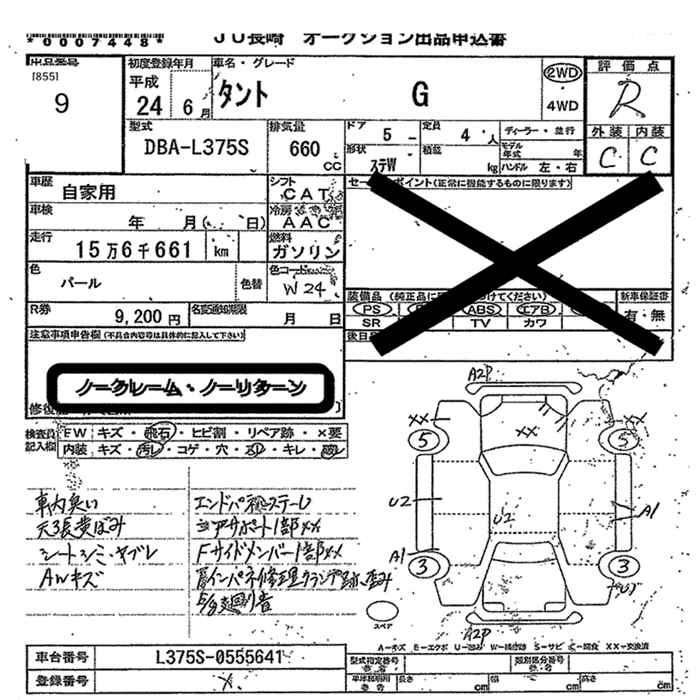 *0007448*
JU長崎 オークション出品申込書
[855]
9
初度登録年月
平成
24 6月
車名・グレード
タント G
2WD
・
4WD
評価点
R
外装 内装
C C
型式
DBA-L375S
排気量
660 CC
ドア 5 -
定員 4 人
ディーラー・並行
形状 ステW
積載 kg
モデル年式 年
ハンドル 左・右
車歴 自家用
シフト CAT
車検 年 月( 日)
冷房 AAC
走行 15万6千661 km
燃料 ガソリン
色 パール 色替
色コードNo. W24
R券 9,200円
名変通知期限 月 日
セールスポイント(正常に機能するものに限ります)
装備品
PS ABS エアB
SR TV カワ
新車保証書
有・無
注意事項申告欄(不具合内容等は具体的に記入して下さい)
ノークレーム・ノーリターン
検査員記入欄
FW キズ・飛石・ヒビ割・リペア跡・×要
内装 キズ・汚レ・コゲ・穴・スレ・キレ・腐レ
車内臭い
天張黄ばみ
シートシミ・ヤブレ
AWキズ
Fサイドメンバー1部××
A2P
××
××
5 5
U2
U2
A1
A1
3 3
A2P
スペア
A=キズ E=エクボ U=凹ミ W=補修跡 S=サビ C=腐食 XX=交換済
車台番号 L375S-0555641
登録番号
型式指定番号
類別区分番号
長さ cm 幅 cm 高さ cm